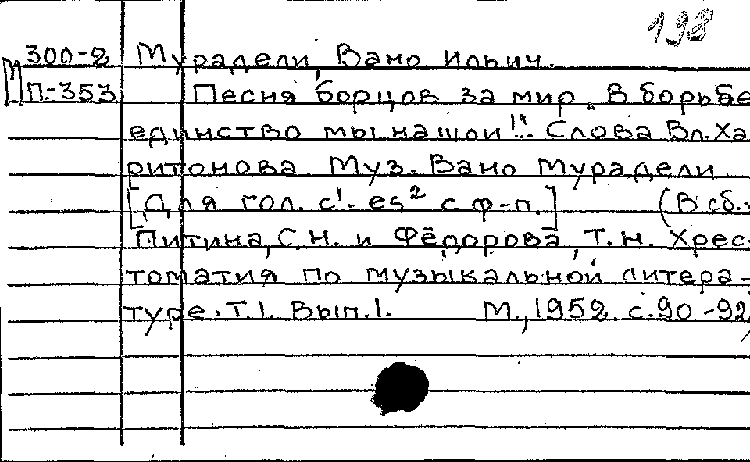 198
300-2 Мурадели, Вано Ильич.
П-353 Песня борцов за мир „В борьбе
единство мы нашли!" Слова Вл. Ха-
ритонова. Муз. Вано Мурадели
[Для гол. c¹-es² с ф-п.] (В сб.:
Питина, С.Н. и Фёдорова, Т.Н. Хрес-
томатия по музыкальной литера-
туре. Т.1. Вып.1. М., 1952. с.90-92